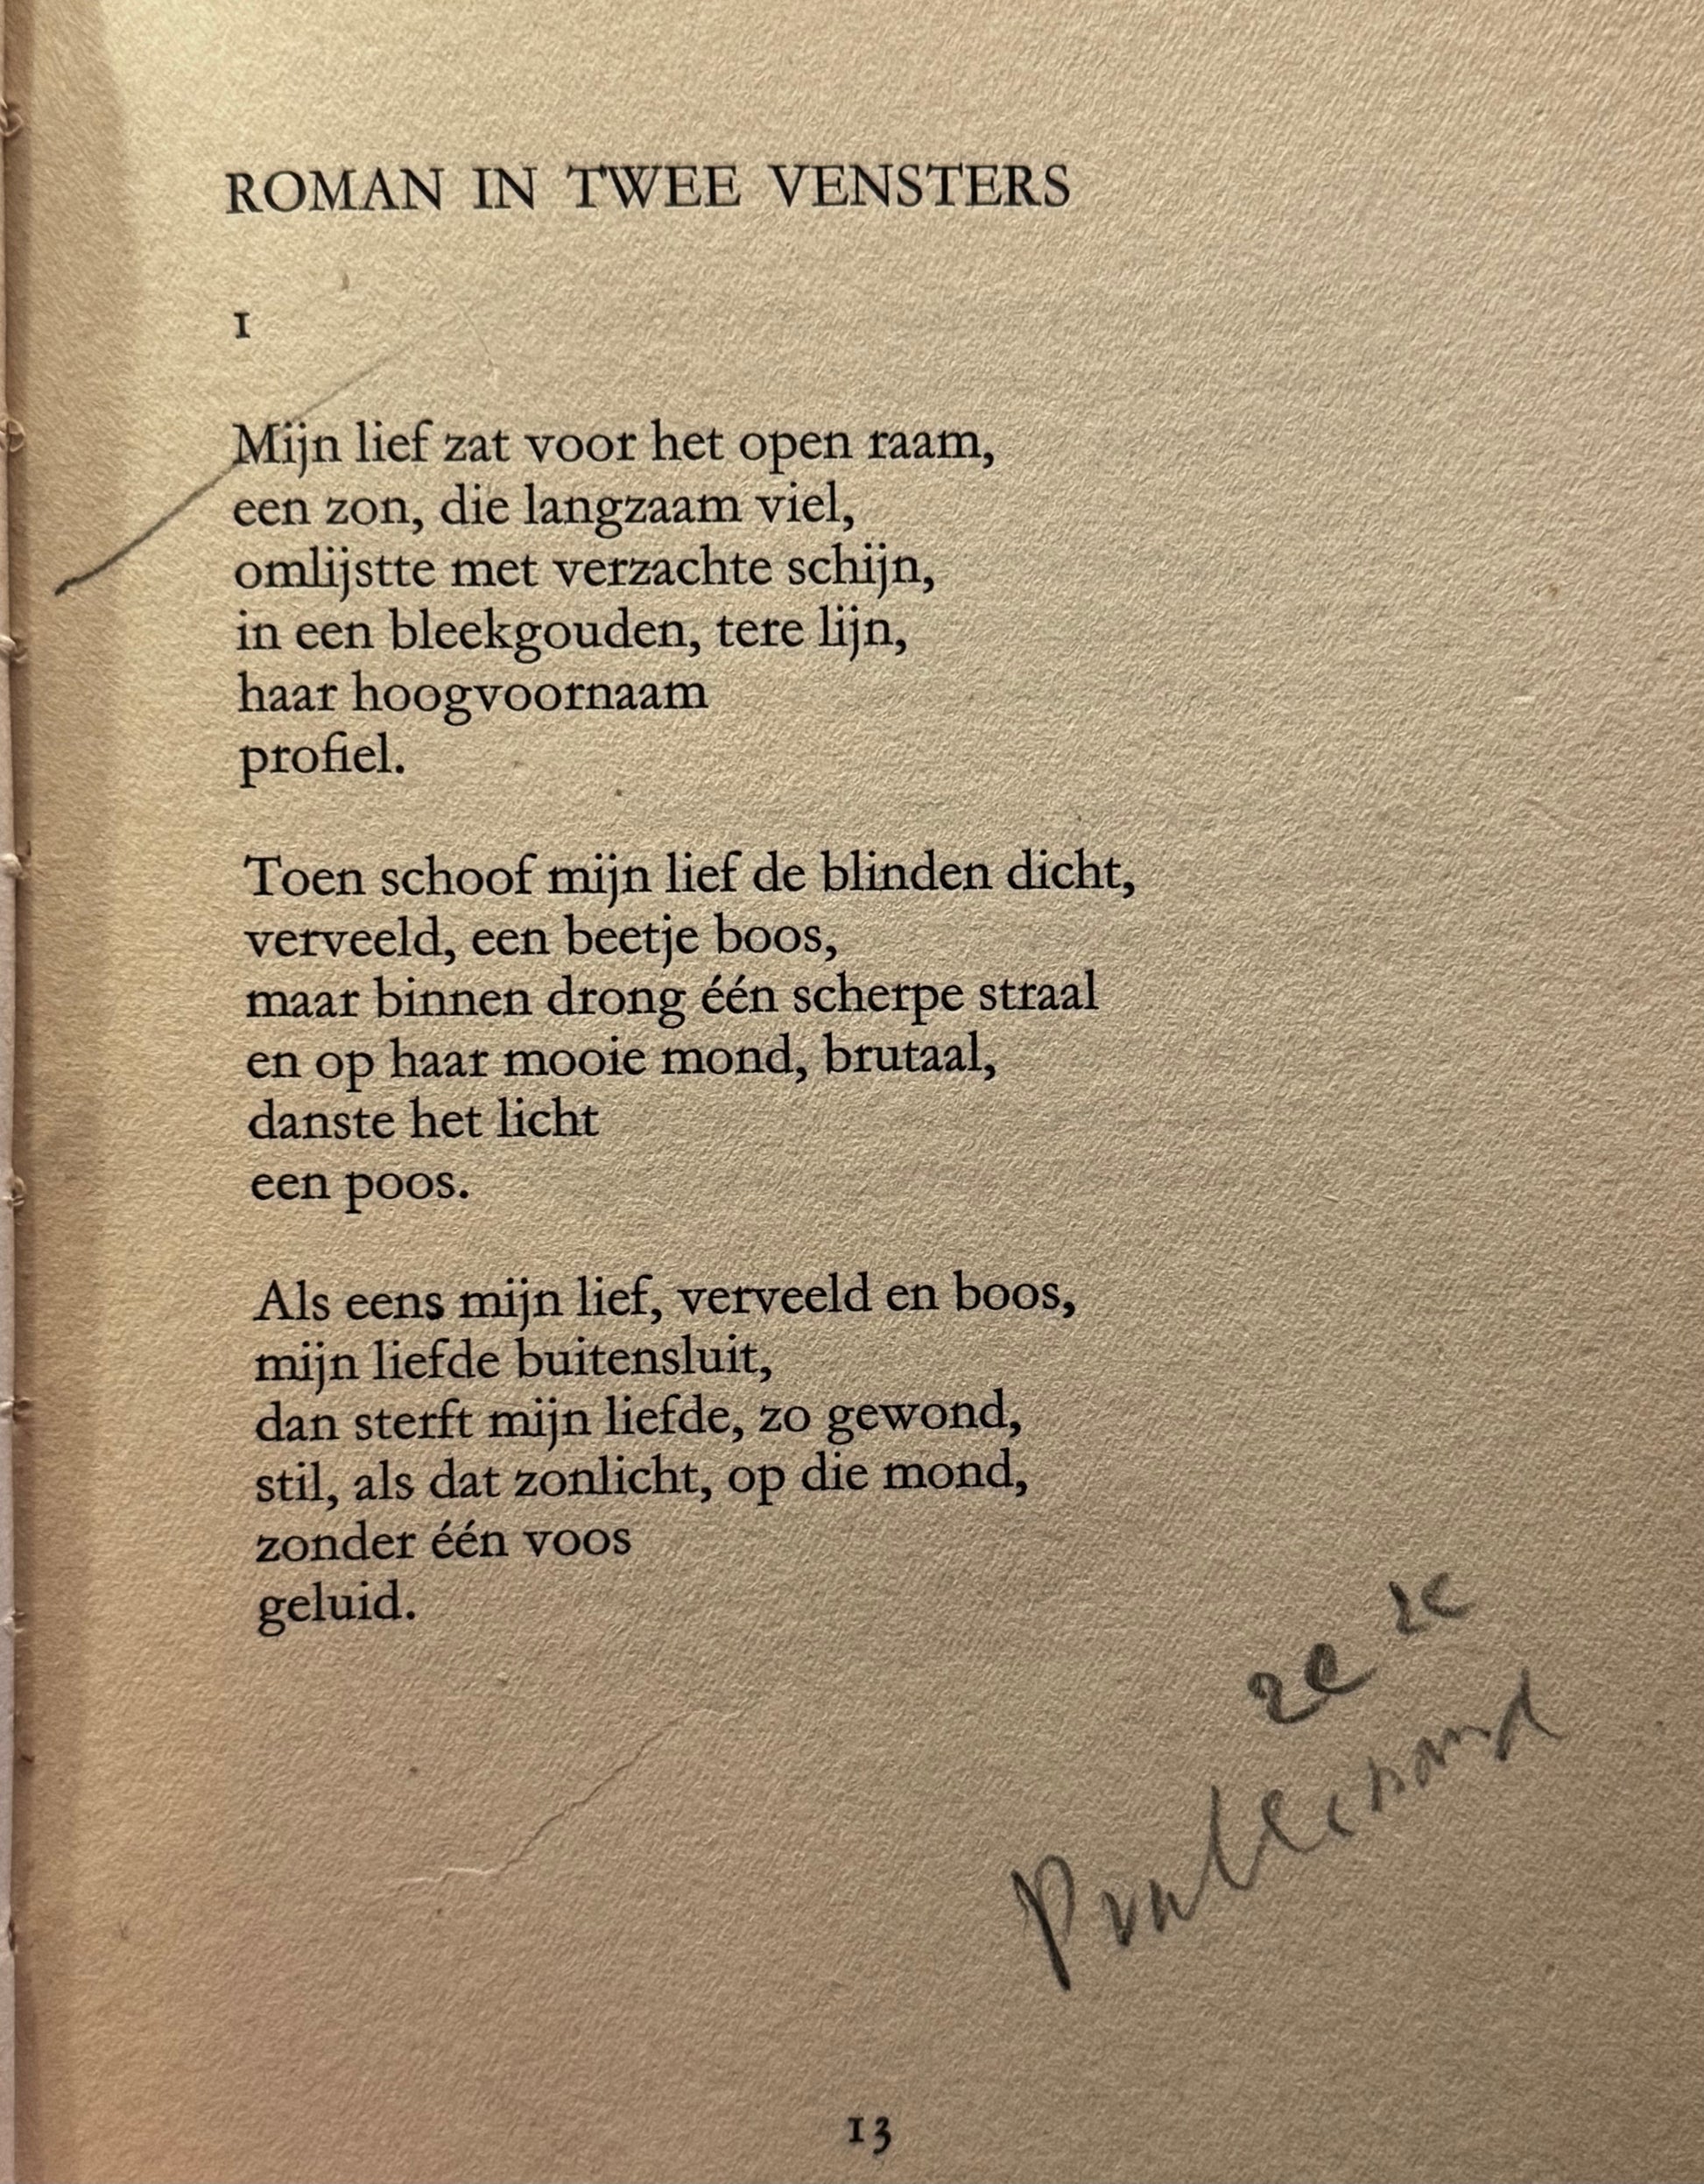 ROMAN IN TWEE VENSTERS
1
Mijn lief zat voor het open raam,
een zon, die langzaam viel,
omlijstte met verzachte schijn,
in een bleekgouden, tere lijn,
haar hoogvoornaam
profiel.
Toen schoof mijn lief de blinden dicht,
verveeld, een beetje boos,
maar binnen drong één scherpe straal
en op haar mooie mond, brutaal,
danste het licht
een poos.
Als eens mijn lief, verveeld en boos,
mijn liefde buitensluit,
dan sterft mijn liefde, zo gewond,
stil, als dat zonlicht, op die mond,
zonder één voos
geluid.
2e
13